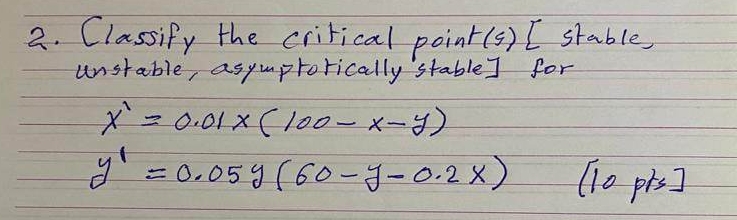 2. Classify the critical point(s) [ stable,
unstable, asymptotically stable] for
x' = 0.01 x ( 100 - x - y )
y' = 0.05 y ( 60 - y - 0.2 x ) [10 pts]